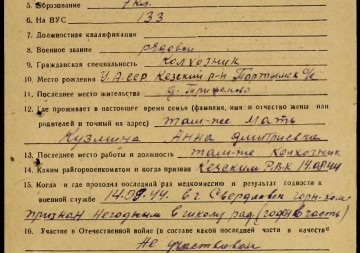 5. Образование 7 кл.
6. На ВУС 133
7. Должностная квалификация
8. Военное звание рядовой
9. Гражданская специальность колхозник
10. Место рождения У.А.ССР. Кезский р-н
11. Последнее место жительства д.
12. Где проживает в настоящее время семья (фамилия, имя и отчество жены или
родителей и точный на адрес) там-же Мать
Кузмина Анна Дмитриевна
13. Последнее место работы и должность там-же Колхозник
14. Каким райгорвоенкоматом и когда призван Кезским РВК
15. Когда и где проходил последний раз медкомиссию и результат годности к
военной службе 14.09.44. в г Свердловск
признан негодным в школу рад. (годен в часть)
16. Участие в Отечественной войне (в составе какой последней части и в качестве
Не участвовал